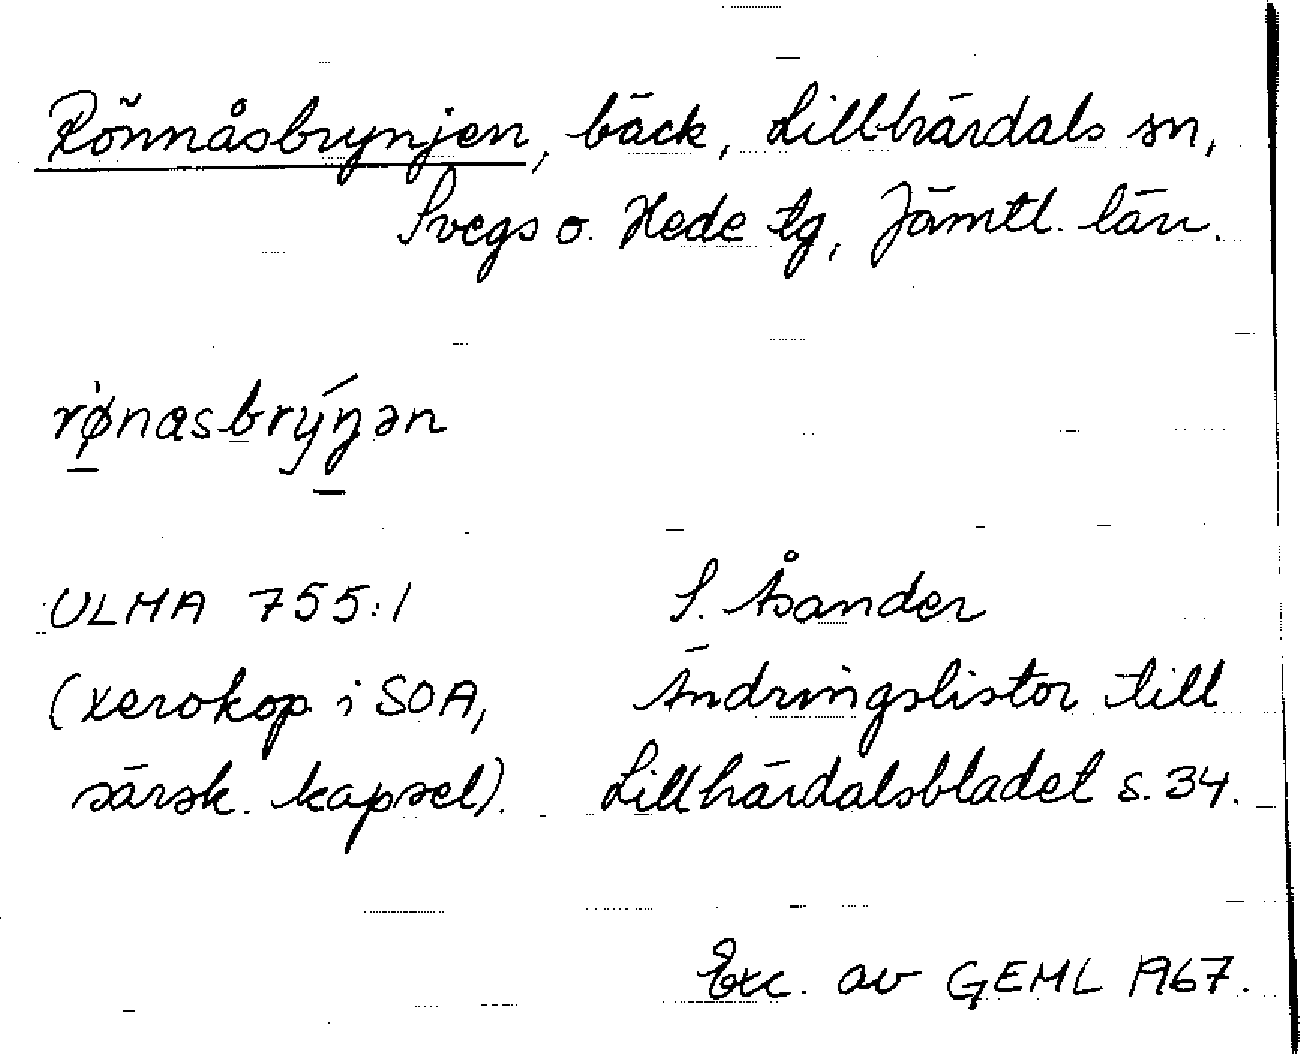 Rönnåsbrynjen, bäck, Lillhärdals sn,
Svegs o. Hede tg, Jämtl. län.
rø̀nasbrýŋən
ULMA 755:1
(xerokop i SOA,
särsk. kapsel).
S. Åsander
Ändringslistor till
Lillhärdalsbladet s. 34.
Exc. av GEML 1967.